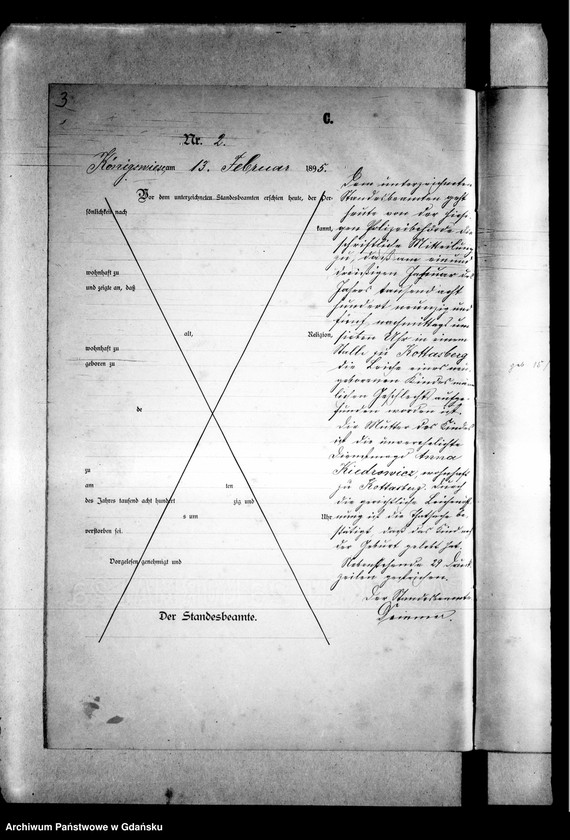 3
C.
Nr. 2.
Königswiese am 13. Februar 1895.
Vor dem unterzeichneten Standesbeamten erschien heute, der Per-
sönlichkeit nach
kannt,
wohnhaft zu
und zeigte an, daß
alt, Religion,
wohnhaft zu
geboren zu
de
zu
am ten
des Jahres tausend acht hundert zig und
s um Uhr
verstorben sei.
Vorgelesen, genehmigt und
Der Standesbeamte.
Dem unterzeichneten
Standesbeamten geht
heute von der hiesi-
gen Polizeibehörde die
schriftliche Mitteilung
zu, daß am einund
dreißigen Januar des
Jahres tausend acht
hundert neunzig und
fünf, nachmittags um
sieben Uhr in einem
Stalle zu Kottasberg
die Leiche eines neu
geborenen Kindes männ
lichen Geschlechts aufge-
funden worden ist.
Die Mutter des Kindes
ist die unverehelichte
Dienstmagd Anna
Kiedrowicz, wohnhaft
zu Kottasberg. Durch
die gerichtliche Leichenöff
nung ist die Thatsache be
stätigt, daß das Kind nach
der Geburt gelebt hat.
Nebenstehende 29 Druck
zeilen gestrichen.
Der Standesbeamte
Archiwum Państwowe w Gdańsku